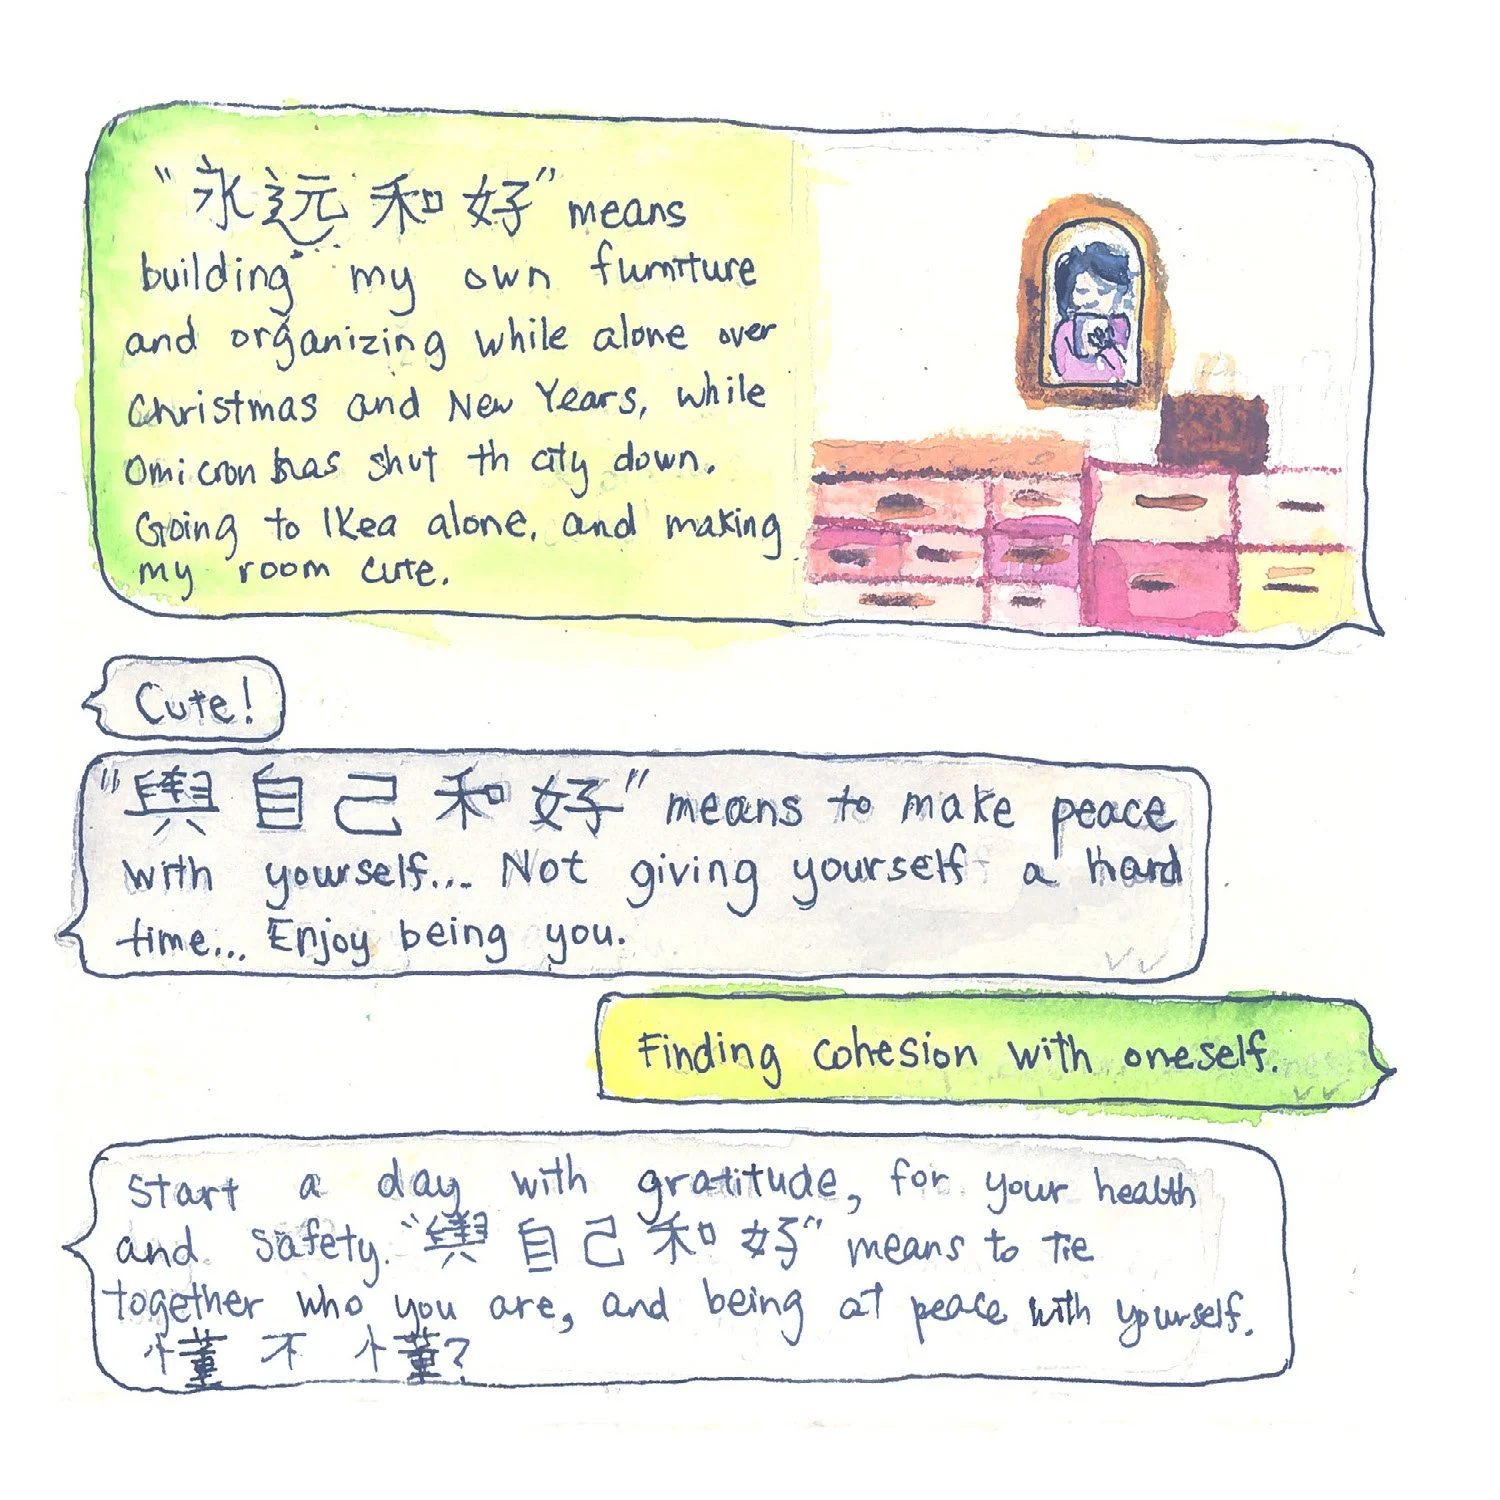 "永远和好" means
building my own furniture
and organizing while alone over
Christmas and New Years, while
Omicron has shut th city down.
Going to IKea alone, and making
my room cute.
Cute!
"與自己和好" means to make peace
with yourself... Not giving yourself a hard
time... Enjoy being you.
Finding cohesion with oneself.
Start a day with gratitude, for your health
and safety. "與自己和好" means to tie
together who you are, and being at peace with yourself.
懂不懂?